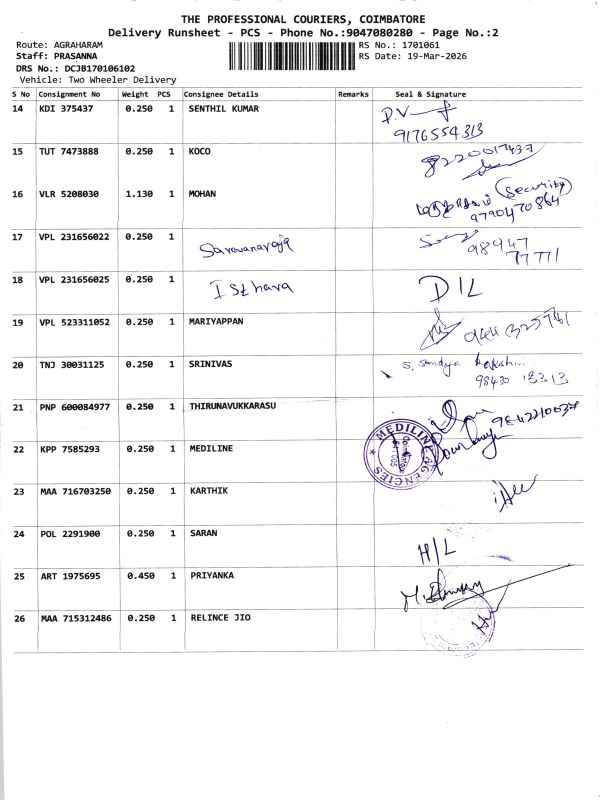 THE PROFESSIONAL COURIERS, COIMBATORE
Delivery Runsheet - PCS - Phone No.:9047080280 - Page No.:2
Route: AGRAHARAM RS No.: 1701061
Staff: PRASANNA RS Date: 19-Mar-2026
DRS No.: DCJB170106102
Vehicle: Two Wheeler Delivery
S No Consignment No Weight PCS Consignee Details Remarks Seal & Signature
14 KDI 375437 0.250 1 SENTHIL KUMAR P.V
9176554313
15 TUT 7473888 0.250 1 KOCO 8220017437
16 VLR 5208030 1.130 1 MOHAN (Security)
9790470864
17 VPL 231656022 0.250 1 Saravanaraja 98947
77771
18 VPL 231656025 0.250 1 Isthara D/L
19 VPL 523311052 0.250 1 MARIYAPPAN
20 TNJ 30031125 0.250 1 SRINIVAS S. Sandya
98430 13313
21 PNP 600084977 0.250 1 THIRUNAVUKKARASU
22 KPP 7585293 0.250 1 MEDILINE MEDILINE AGENCIES
23 MAA 716703250 0.250 1 KARTHIK
24 POL 2291900 0.250 1 SARAN H/L
25 ART 1975695 0.450 1 PRIYANKA
26 MAA 715312486 0.250 1 RELINCE JIO